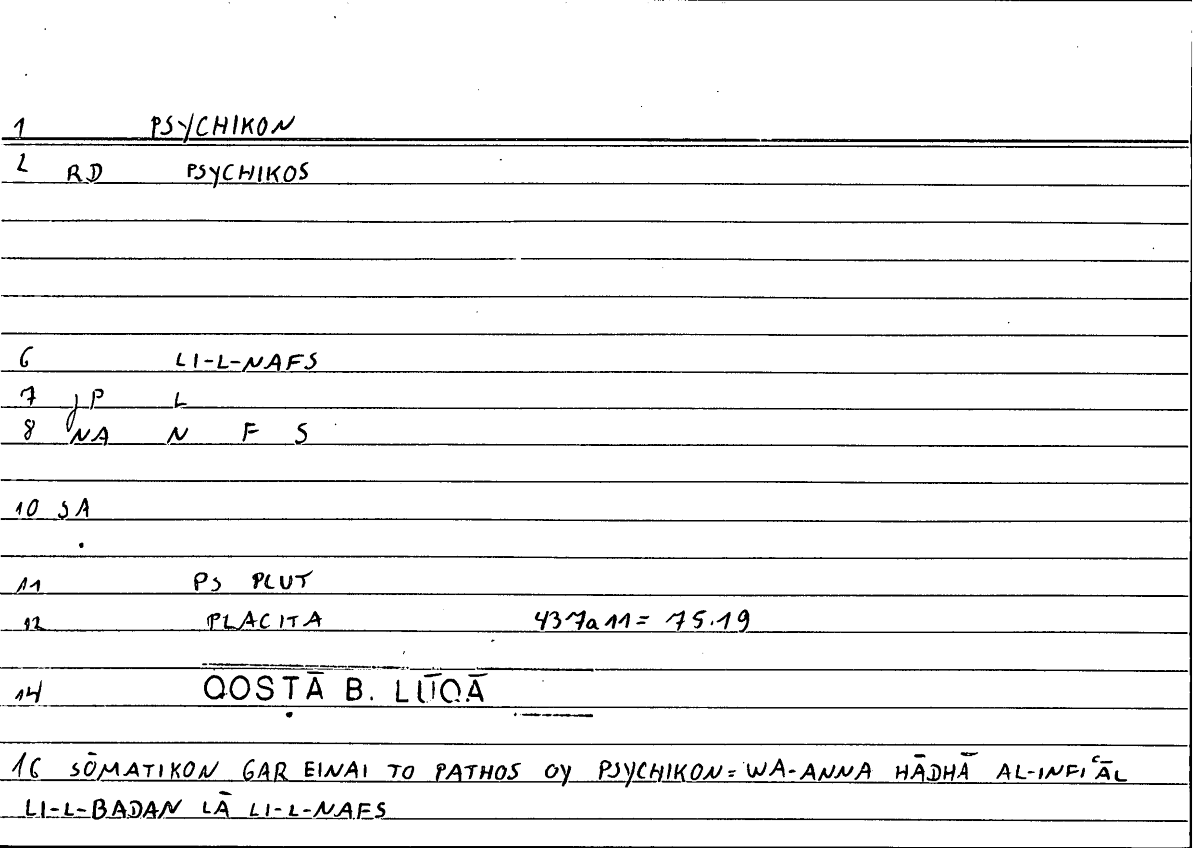 1 PSYCHIKON
2 RD PSYCHIKOS
6 LI-L-NAFS
7 JP L
8 NA N F S
10 SA
11 PS PLUT
12 PLACITA 437a11= 75.19
14 QOSṬĀ B. LŪQĀ
16 SŌMATIKON GAR EINAI TO PATHOS OY PSYCHIKON= WA-ANNA HĀDHĀ AL-INFIʿĀL
LI-L-BADAN LĀ LI-L-NAFS